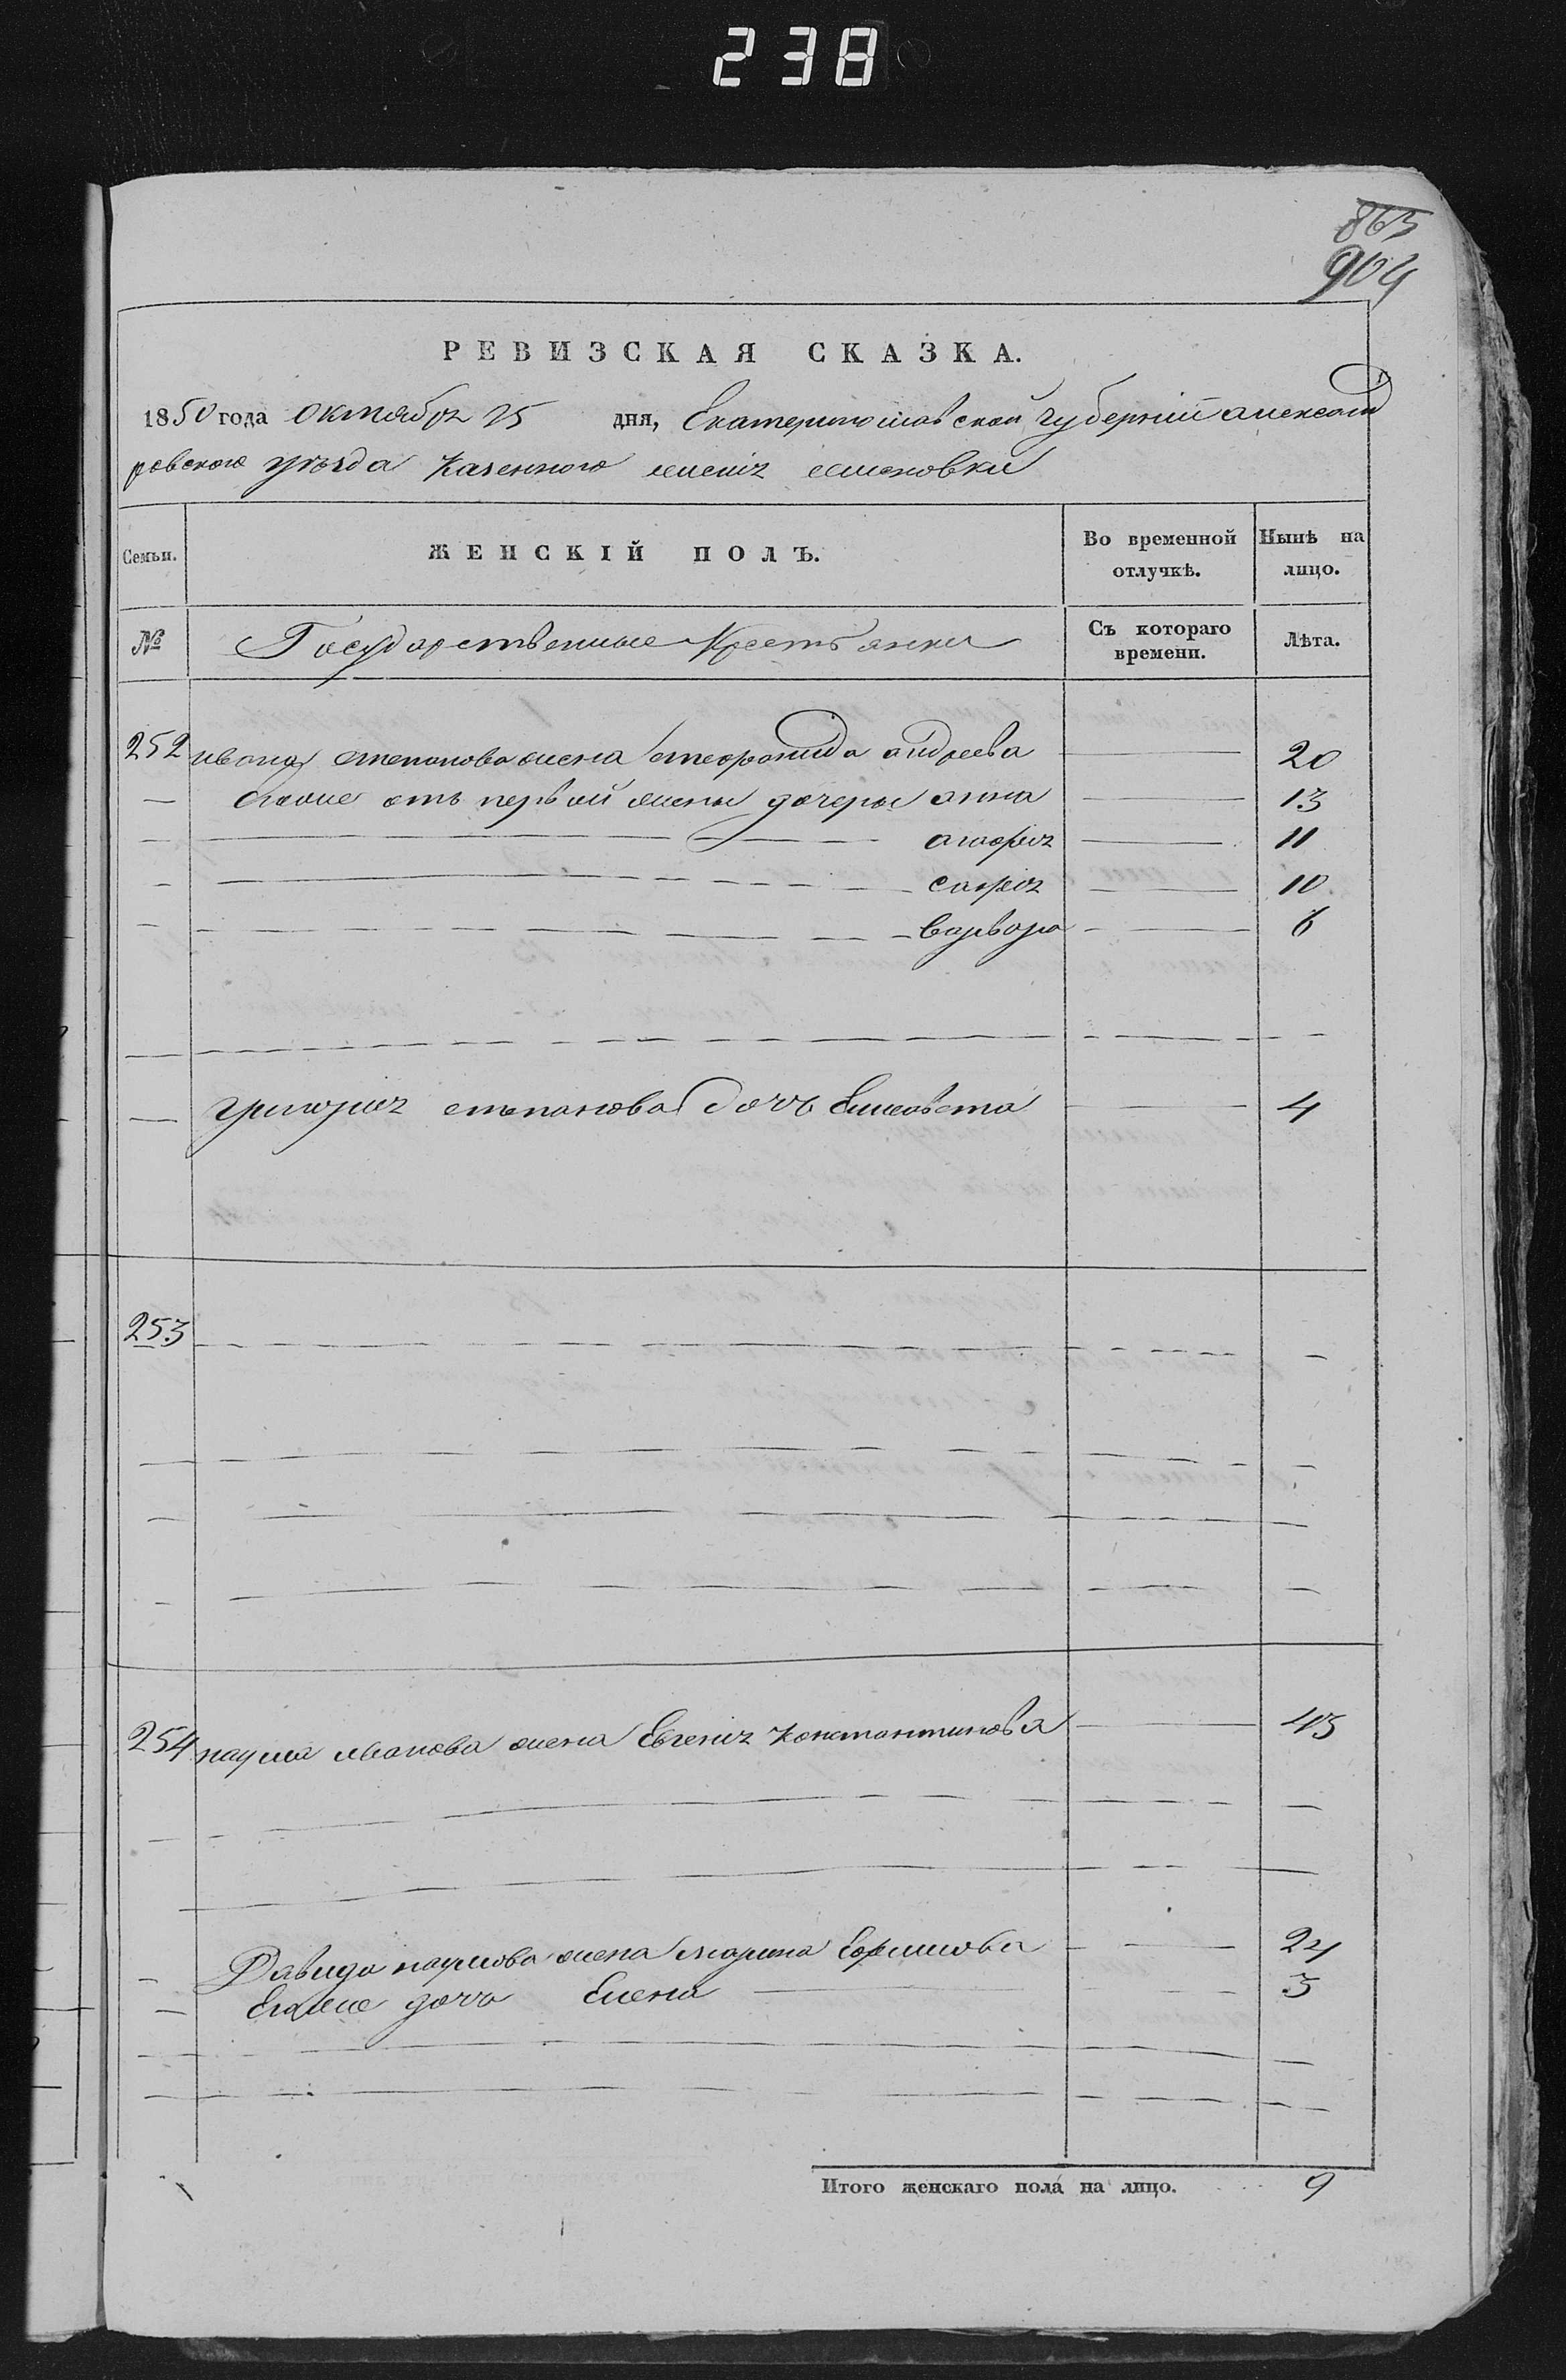 238
865
904
РЕВИЗСКАЯ СКАЗКА.
1850 года октября 25 дня, Екатеринославской губерніи александ
ровского уезда казенного
Семьи. ЖЕНСКІЙ ПОЛЪ. Во временной отлучкѣ. Нынѣ на лицо.
№ Государственные Крестьянки Съ котораго времени. Лѣта.
252 ивана степанова жена стефанида андреева — 20
— Егоже отъ первой жены дочери анна — 13
— агафія — 11
— — 10
— варвара — 6
— григорія степанова дочь Елисавета — 4
253
254 наума иванова жена Евгенія константинова — 45
— Давида наумова жена марина — 24
— Егоже дочь Елена — 3
Итого женскаго пола на лицо. 9